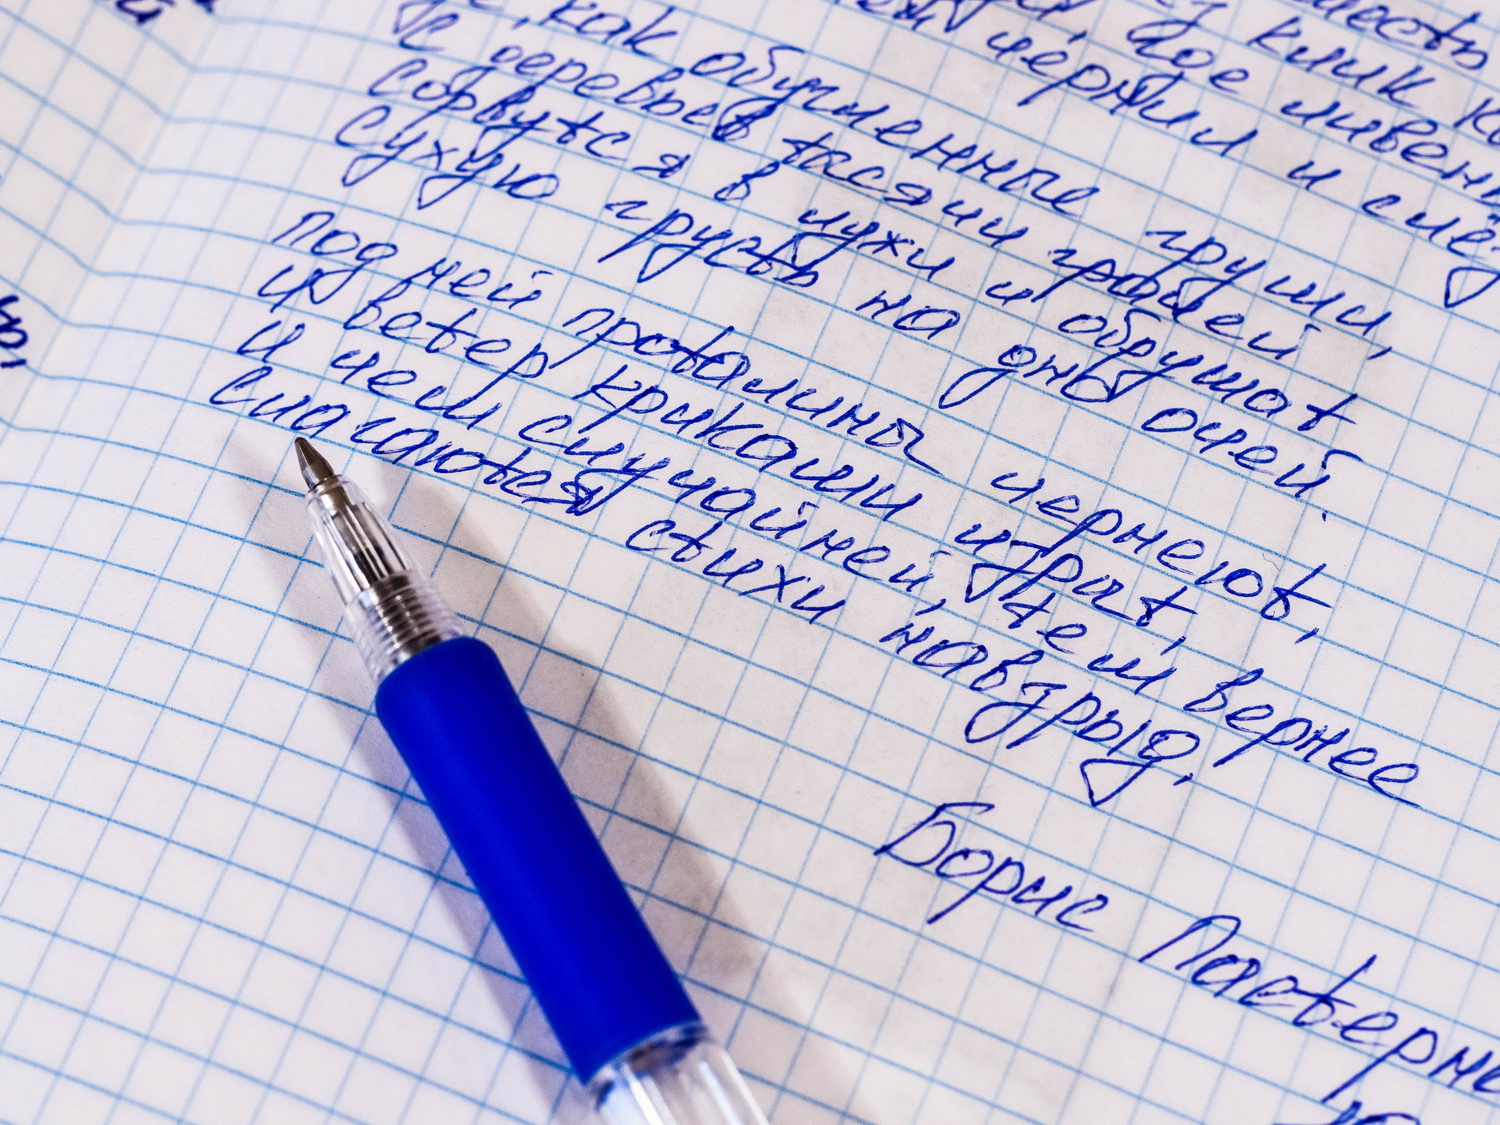 клик
где ливень
чернил и слёз
как обугленные груши,
С деревьев тысячи грачей
Сорвутся в лужи и обрушат
Сухую грусть на дно очей.
Под ней проталины чернеют,
И ветер криками изрыт,
И чем случайней, тем вернее
Слагаются стихи навзрыд.
Борис Пастерн